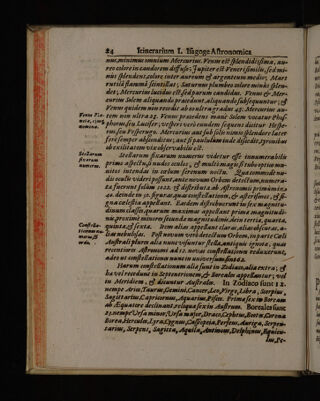 24 Itinerarium I. Isagoge Astronomica
nus, minimus omnium Mercurius. Venus est splendidissima, au-
reo colore in candorem diffuso; Jupiter est Veneri similis, sed mi-
nus splendens, colore inter aureum & argenteum medio; Mars
rutilâ flammâ scintillat; Saturnus plumbeo colore minus splen-
det; Mercurius lucidus est, sed parum candidus. Venus & Mer-
curius Solem aliquando praecedunt, aliquando subsequuntur; &
Venus quidem non recedit ab eo ultra gradus 47. Mercurius au-
tem non ultra 27. Venus praecedens mane Solem vocatur Phos-
phorus, seu Lucifer; vesperi verò eundem sequens dicitur Hespe-
rus, seu Vesperugo. Mercurius aut sub solis nimio splendore latet
ferè semper absconditus; aut si paululum inde discedit,
ob exilitatem vix observabilis est.
Stellarum
fixarum
numerus.
Stellarum fixarum numerus videtur esse innumerabilis
primo aspectu, si nudis oculis, & multi magni studij optio
nuites intendas in caelum serenum noctu. Quae commodè nu-
dis oculis videri possunt, ante novum Orbem detectum, numera-
tae fuerunt solum 1022. & distributae ab Astronomis primùm in
48. deinde in 52. figuras, quas constellationes, & asterismos, & si-
gna caelestia appellant. Eaedem distribuuntur in sex magnitu-
dinum classes, quarum maximas appellant primae magnitudi-
nis, proximè minores secundae magnitudinis, dein tertiae, quartae,
quintae, & sextae. Item alias appellant claras, alias obscuras, a-
lias nebulosas. Postquam verò detectus Orbis, in parte Caeli
Australi plures aliae
recentiores Astronomi ad 12. novas constellationes reduxerunt,
adeo ut constellationes nunc in universum sint 62.
Harum constellationum aliae sunt in Zodiaco, aliae extra; &
hae vel recedunt in Septentrionem, & Boreales appellantur; vel
in Meridiem, & dicuntur Australes. In Zodiaco sunt 12.
nempe Aries, Taurus, Gemini, Cancer, Leo, Virgo, Libra, Scorpius,
Sagittarius, Capricornus, Aquarius, Pisces. Primae sex in Boream
ab Æquatore declinant, reliquae sex in Austrum. Boreales sunt
23. nempe Ursa minor, Ursa major, Draco, Cepheus, Bootes, Corona
Borea, Hercules, Lyra, Cygnus, Cassiopeia, Perseus, Auriga, Serpen-
tarius, Serpens, Sagitta, Aquila, Antinous, Delphinus, Equicu-
lus, Pe-